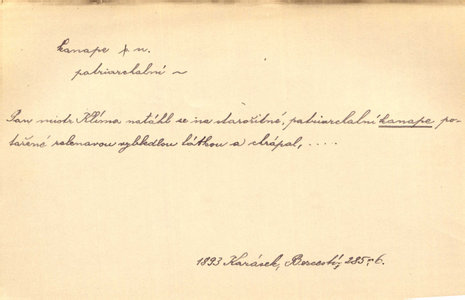 kanape n.
patriarchalní ~
Pan mistr Klíma natáhl se na starožitné, patriarchalní kanape po-
tažené zelenavou vybledlou látkou a chrápal, ....
1893 Karásek, Bezcestí, 285-6.